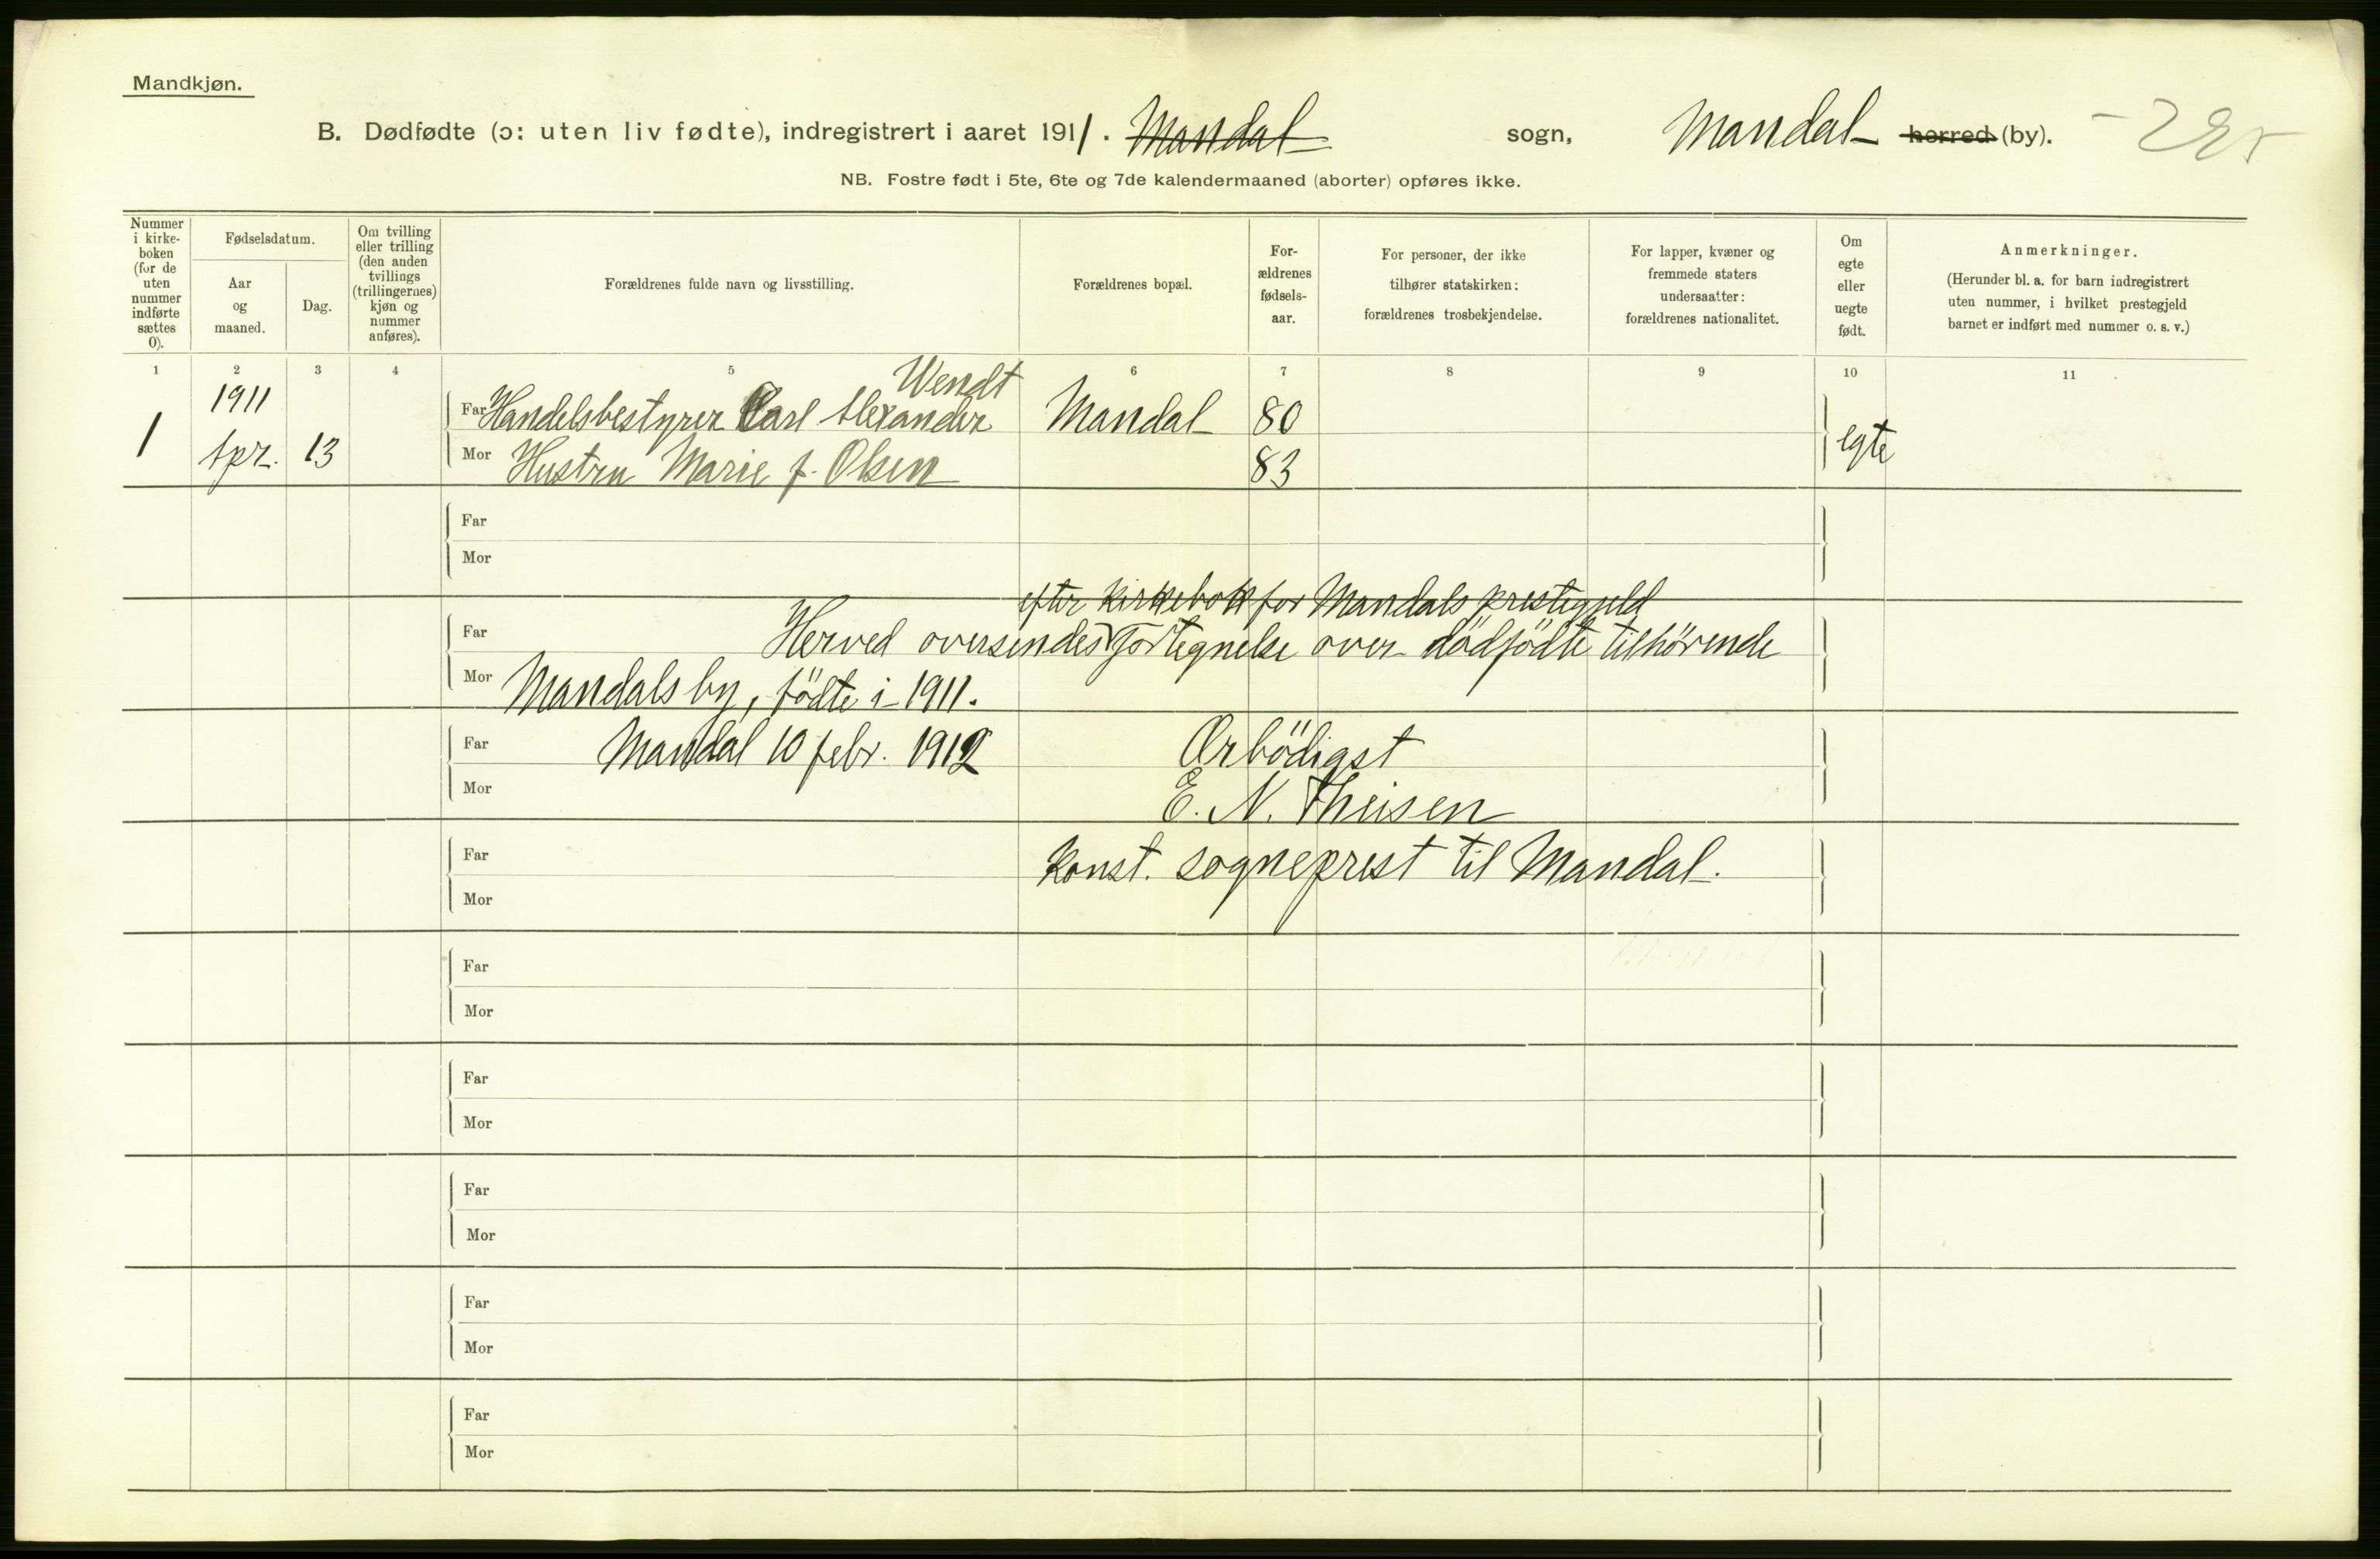 Mandkjøn.
B. Dødfødte (ɔ: uten liv fødte), indregistrert i aaret 1911. Mandal sogn, Mandal herred (by).
NB. Fostre født i 5te, 6te og 7de kalendermaaned (aborter) opføres ikke.
Nummer i kirke-boken (for de uten nummer indførte sættes 0).
Fødselsdatum.
Aar og maaned.
Dag.
Om tvilling eller trilling (den anden tvillings (trillingernes) kjøn og nummer anføres).
Forældrenes fulde navn og livsstilling.
Forældrenes bopæl.
For-ældrenes fødsels-aar.
For personer, der ikke tilhører statskirken: forældrenes trosbekjendelse.
For lapper, kvæner og fremmede staters undersaatter: forældrenes nationalitet.
Om egte eller uegte født.
Anmerkninger.
(Herunder bl. a. for barn indregistrert uten nummer, i hvilket prestegjeld barnet er indført med nummer o. s. v.)
1 2 3 4 5 6 7 8 9 10 11
1911 Wendt
1 Far Handelsbestyrer Carl Alexander Mandal 80
Apr. 13 Mor Hustru Marie f. Olsen 83 egte
Far
Mor
efter kirkebok for Mandals prestegjeld
Far Herved oversendes fortegnelse over dödfödte tilhörende
Mor Mandals by, födte i 1911.
Far Mandal 10 febr. 1912 Ærbödigst
Mor E. N. Theisen
Far konst. sogneprest til Mandal.
Mor
Far
Mor
Far
Mor
Far
Mor
Far
Mor
Far
Mor